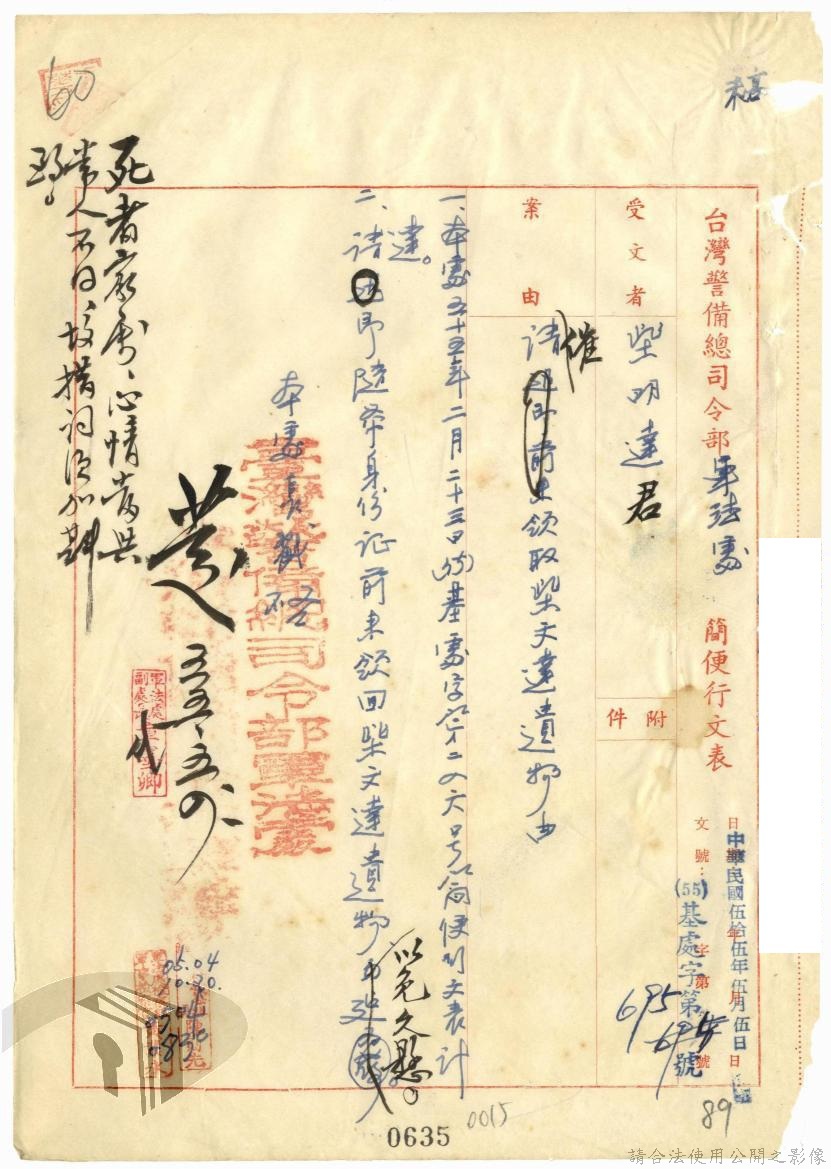 稿
台灣警備總司令部軍法處　簡便行文表
日期
中華民國伍拾伍年伍月伍日
文號：　字第　號
(55)基處字第　號
695
受文者
柴明達君
附件
案由
催
請　前來領取柴文達遺物由
一、本處五十五年二月二十三日(55)基處字第二八六號簡便行文表計
達。
二、請　即隨帶身份証前來領回柴文達遺物
以免久懸。
本處長戳
臺灣警備總司令部軍法處
五五、五
代
死者家屬、心情當與
常人不同、故措詞須加斟
酌。
60
05.04
89
0015
0635
請合法使用公開之影像